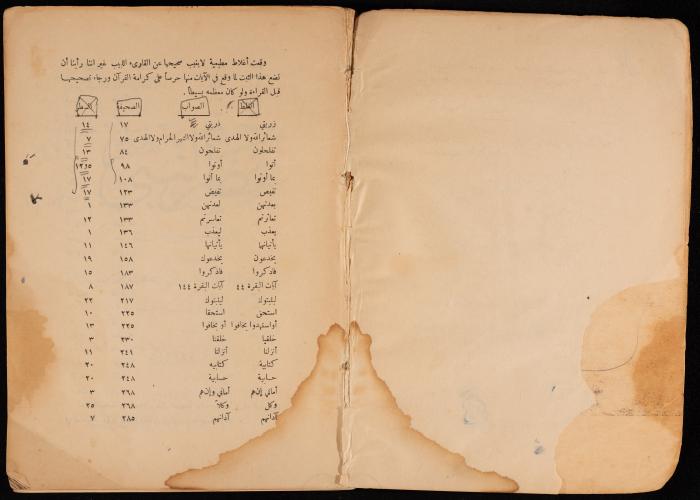 وقعت أغلاط مطبعية لا يغيب صحيحها عن القارىء اللبيب غير اننا رأينا أن
نضع هذا الثبت لما وقع في الآيات منها حرصاً على كرامة القرآن ورجاء تصحيحها
قبل القراءة ولو كان معظمه بسيطاً .
الغلط الصواب الصحيفة السطر
ذريتي ذريتي ١٧ ١٤
شعائر الله ولا الهدى شعائر الله ولا الشهر الحرام ولا الهدى ٧٥ ٧
تفلحلون تفلحون ٨٤ ١٣
أتوا أوتوا ٩٨ ٥و١٢
بما أوتوا بما أتوا ١٠٨ ١٧
تفيص تفيض ١٢٣ ١٧
بعدتهن لعدتهن ١٣٣ ١
تعاثرتم تعاسرتم ١٣٣ ١٢
يعذب ليعذب ١٣٦ ١
يأتيانها يأتيانها ١٤٦ ١١
يخدعون يخدعوك ١٥٨ ١٩
فاذكروا فاذكروا ١٨٣ ١٥
آيات البقرة ٤٤ آيات البقرة ١٤٤ ١٨٧ ٨
ليلبتوك ليثبتوك ٢١٧ ٢٢
استحق استحقا ٢٢٥ ١٠
أو يخافوا أو يخافوا ٢٢٥ ١٣
خلقيا خلقنا ٢٣٠ ٣
أنزلنا أنزلنا ٢٤١ ١١
كتابية كتابيه ٢٤٨ ٢٠
حسابية حسابيه ٢٤٨ ٢٠
أماني وإن هم ٢٦٨ ٣
وكل وكلاً ٢٦٨ ٢٥
آذانهم آذانهم ٢٨٥ ٧